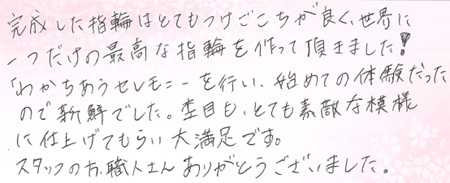 完成した指輪はとてもつけごこちが良く、世界に
一つだけの最高な指輪を作って頂きました!
「わかちあうセレモニーを行い、始めての体験だった
ので新鮮でした。杢目も、とても素敵な模様
に仕上げてもらい大満足です。
スタッフの方、職人さんありがとうございました。